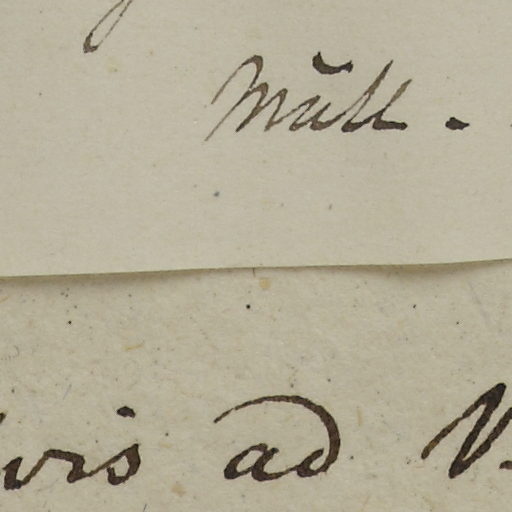 Müll.
vis ad V.